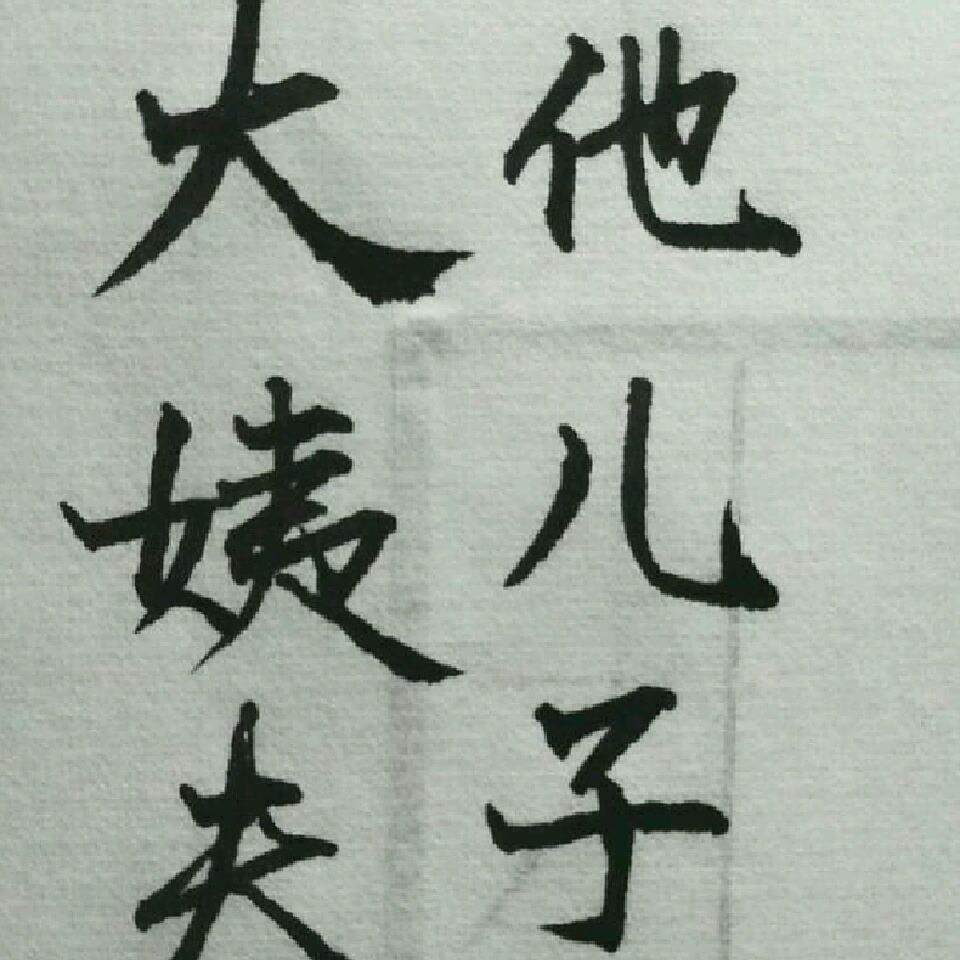 他儿子
大姨夫